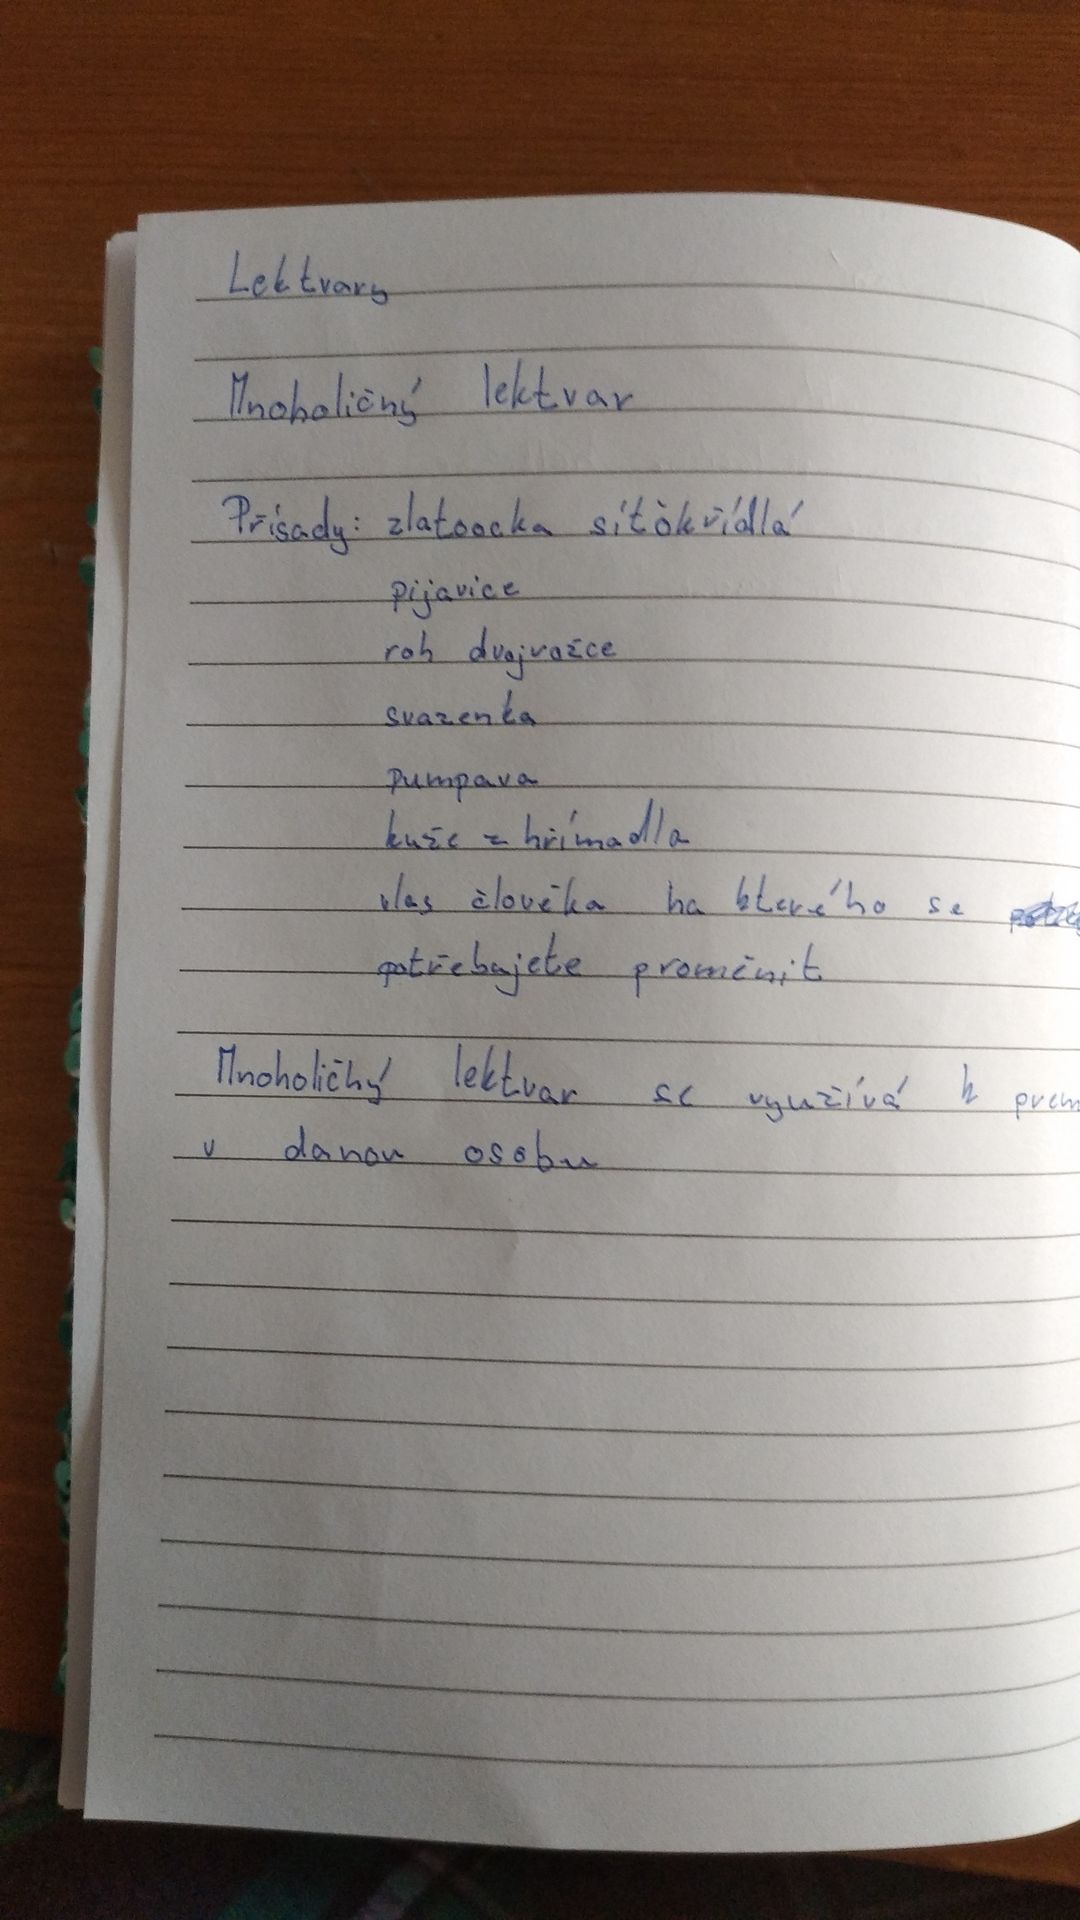 Lektvary
Mnoholičný lektvar
Přísady: zlatoocka sítòkřídlá
pijavice
roh dvojrožce
svazenka
pumpava
kuže z hřímadla
vlas člověka na kterého se
potřebujete proměnit
Mnoholičný lektvar se využívá k
v danou osobu